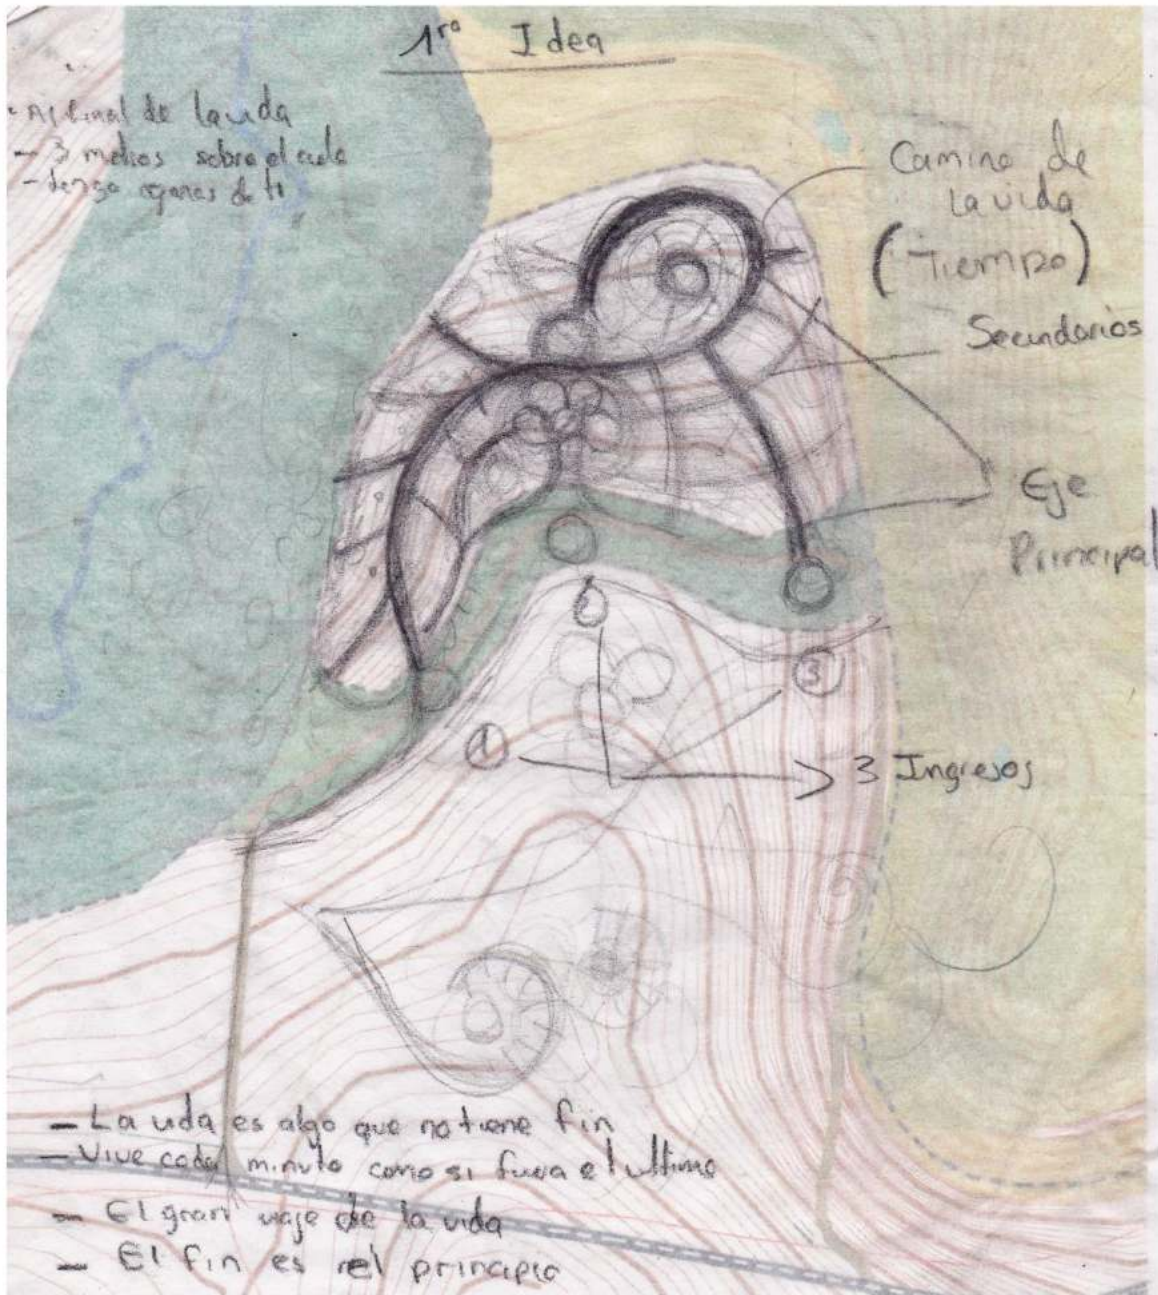 1ra Idea
Al final de la vida
- 3 metros sobre el cielo
- tengo ganas de ti
Camino de
la vida
(Tiempo)
Secundarios
Eje
Principal
2
3
1
3 Ingresos
- La vida es algo que no tiene fin
- Vive cada minuto como si fuera el ultimo
- El gran viaje de la vida
- El fin es el principio